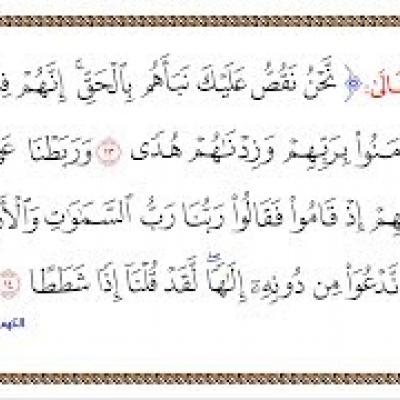 ـالى: ﴿ نَّحْنُ نَقُصُّ عَلَيْكَ نَبَأَهُم بِٱلْحَقِّ ۚ إِنَّهُمْ فِـ
ـمَنُوا۟ بِرَبِّهِمْ وَزِدْنَـٰهُمْ هُدًى ۝١٣ وَرَبَطْنَا عَـ
ـهِمْ إِذْ قَامُوا۟ فَقَالُوا۟ رَبُّنَا رَبُّ ٱلسَّمَـٰوَٰتِ وَٱلْأَ
نَّدْعُوَا۟ مِن دُونِهِۦٓ إِلَـٰهًا ۖ لَّقَدْ قُلْنَآ إِذًا شَطَطًا ۝١٤
الكهـ